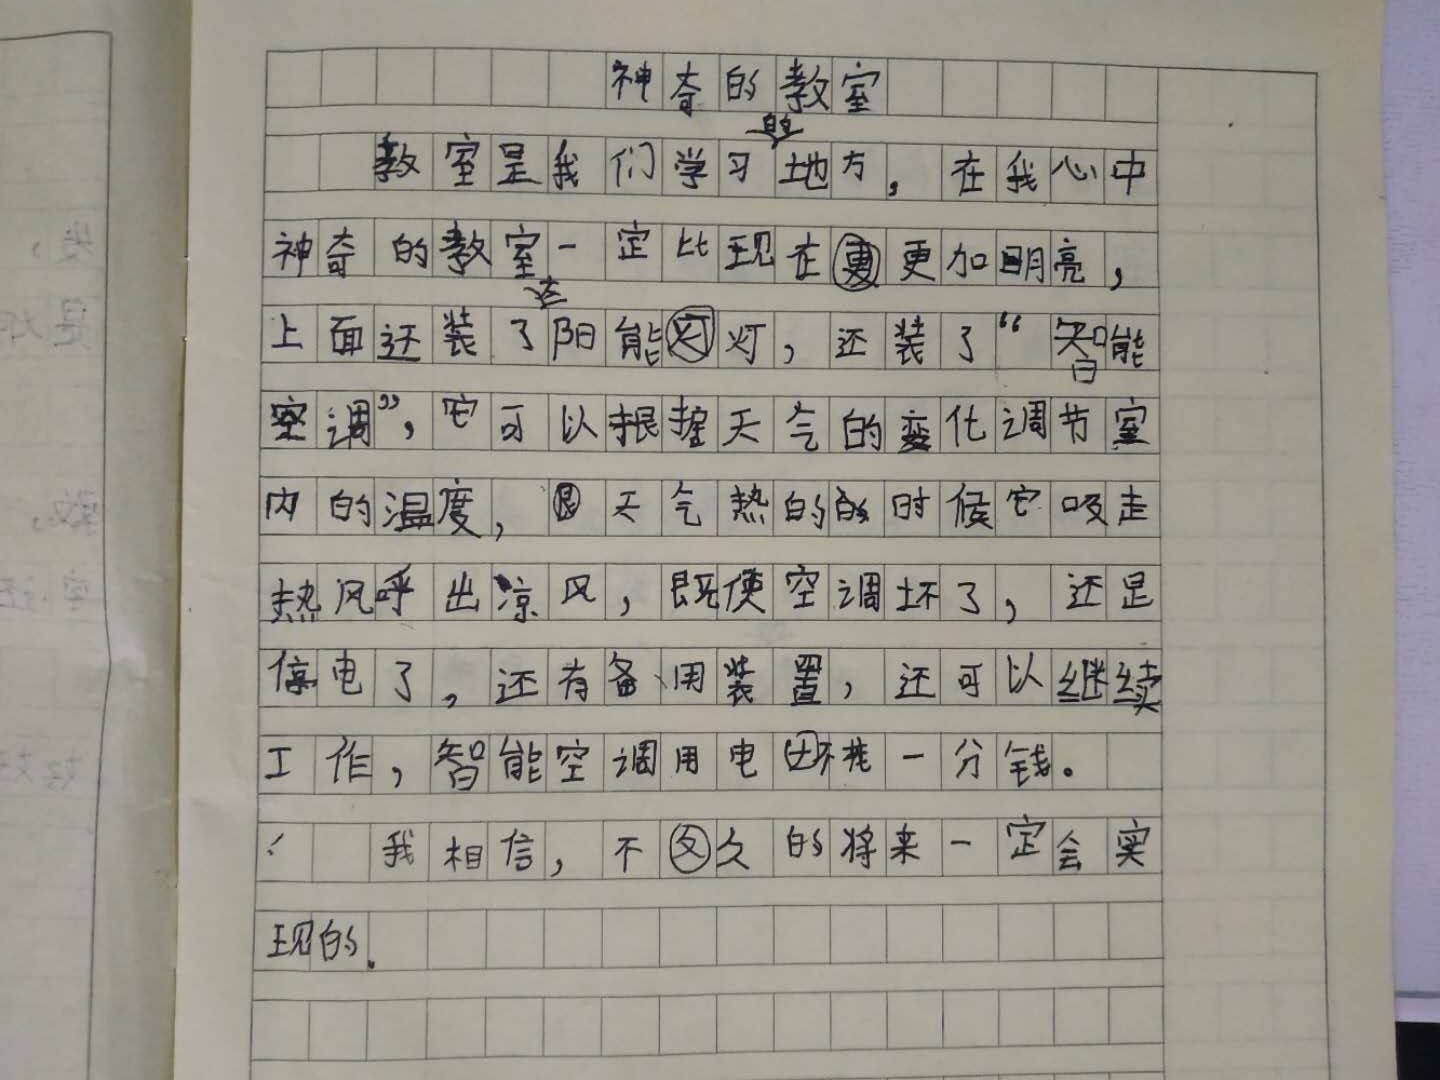 神奇的教室
教室是我们学习的地方，在我心中
神奇的教室一定比现在更更加明亮，
上面还装了太阳能灯灯，还装了“智能
空调”，它可以根据天气的变化调节室
内的温度，天气热的的时候它吸走
热风呼出凉风，既使空调坏了，还是
停电了，还有备用装置，还可以继续
工作，智能空调用电还不花一分钱。
我相信，不久的将来一定会实
现的.